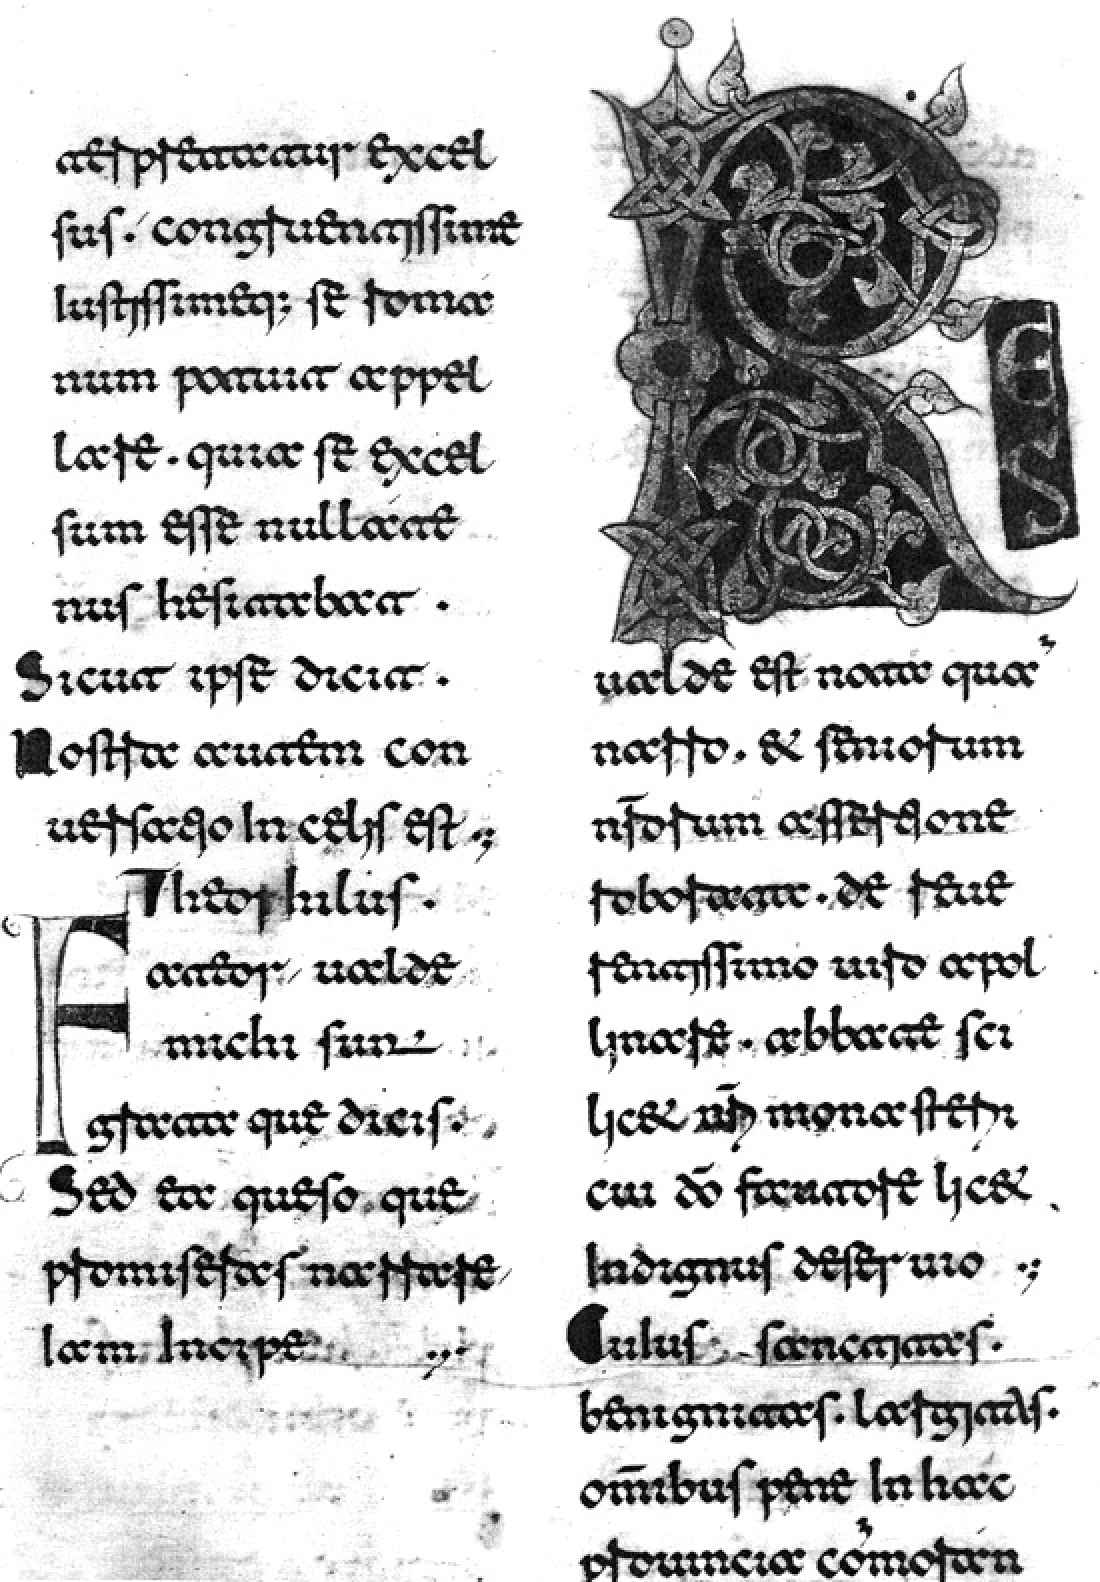 ac epspectatur excel
sus. congruentissime
Iustissimeq; se roma
num potuit appel
lare. quia se excel
sum esse nullate
nus hesitabat.
Sicut ipse dicit.
Nostra autem con
uersatio In celis est.
Theophilus.
Fateor ualde
michi sun
grata que dicis.
Sed ea queso que
promiseras narrare
Iam Incipe
RES
ualde est nota qua
narro. & seniorum
nrorum assertione
roborata. de reue
rentissimo uiro apol
linare. abbate sci
lic& monasterii
cui do fautore lic&
Indignus deseruio
Cuius sanctitas.
benignitas. largitas.
omibus pene In hac
prouincia comoran